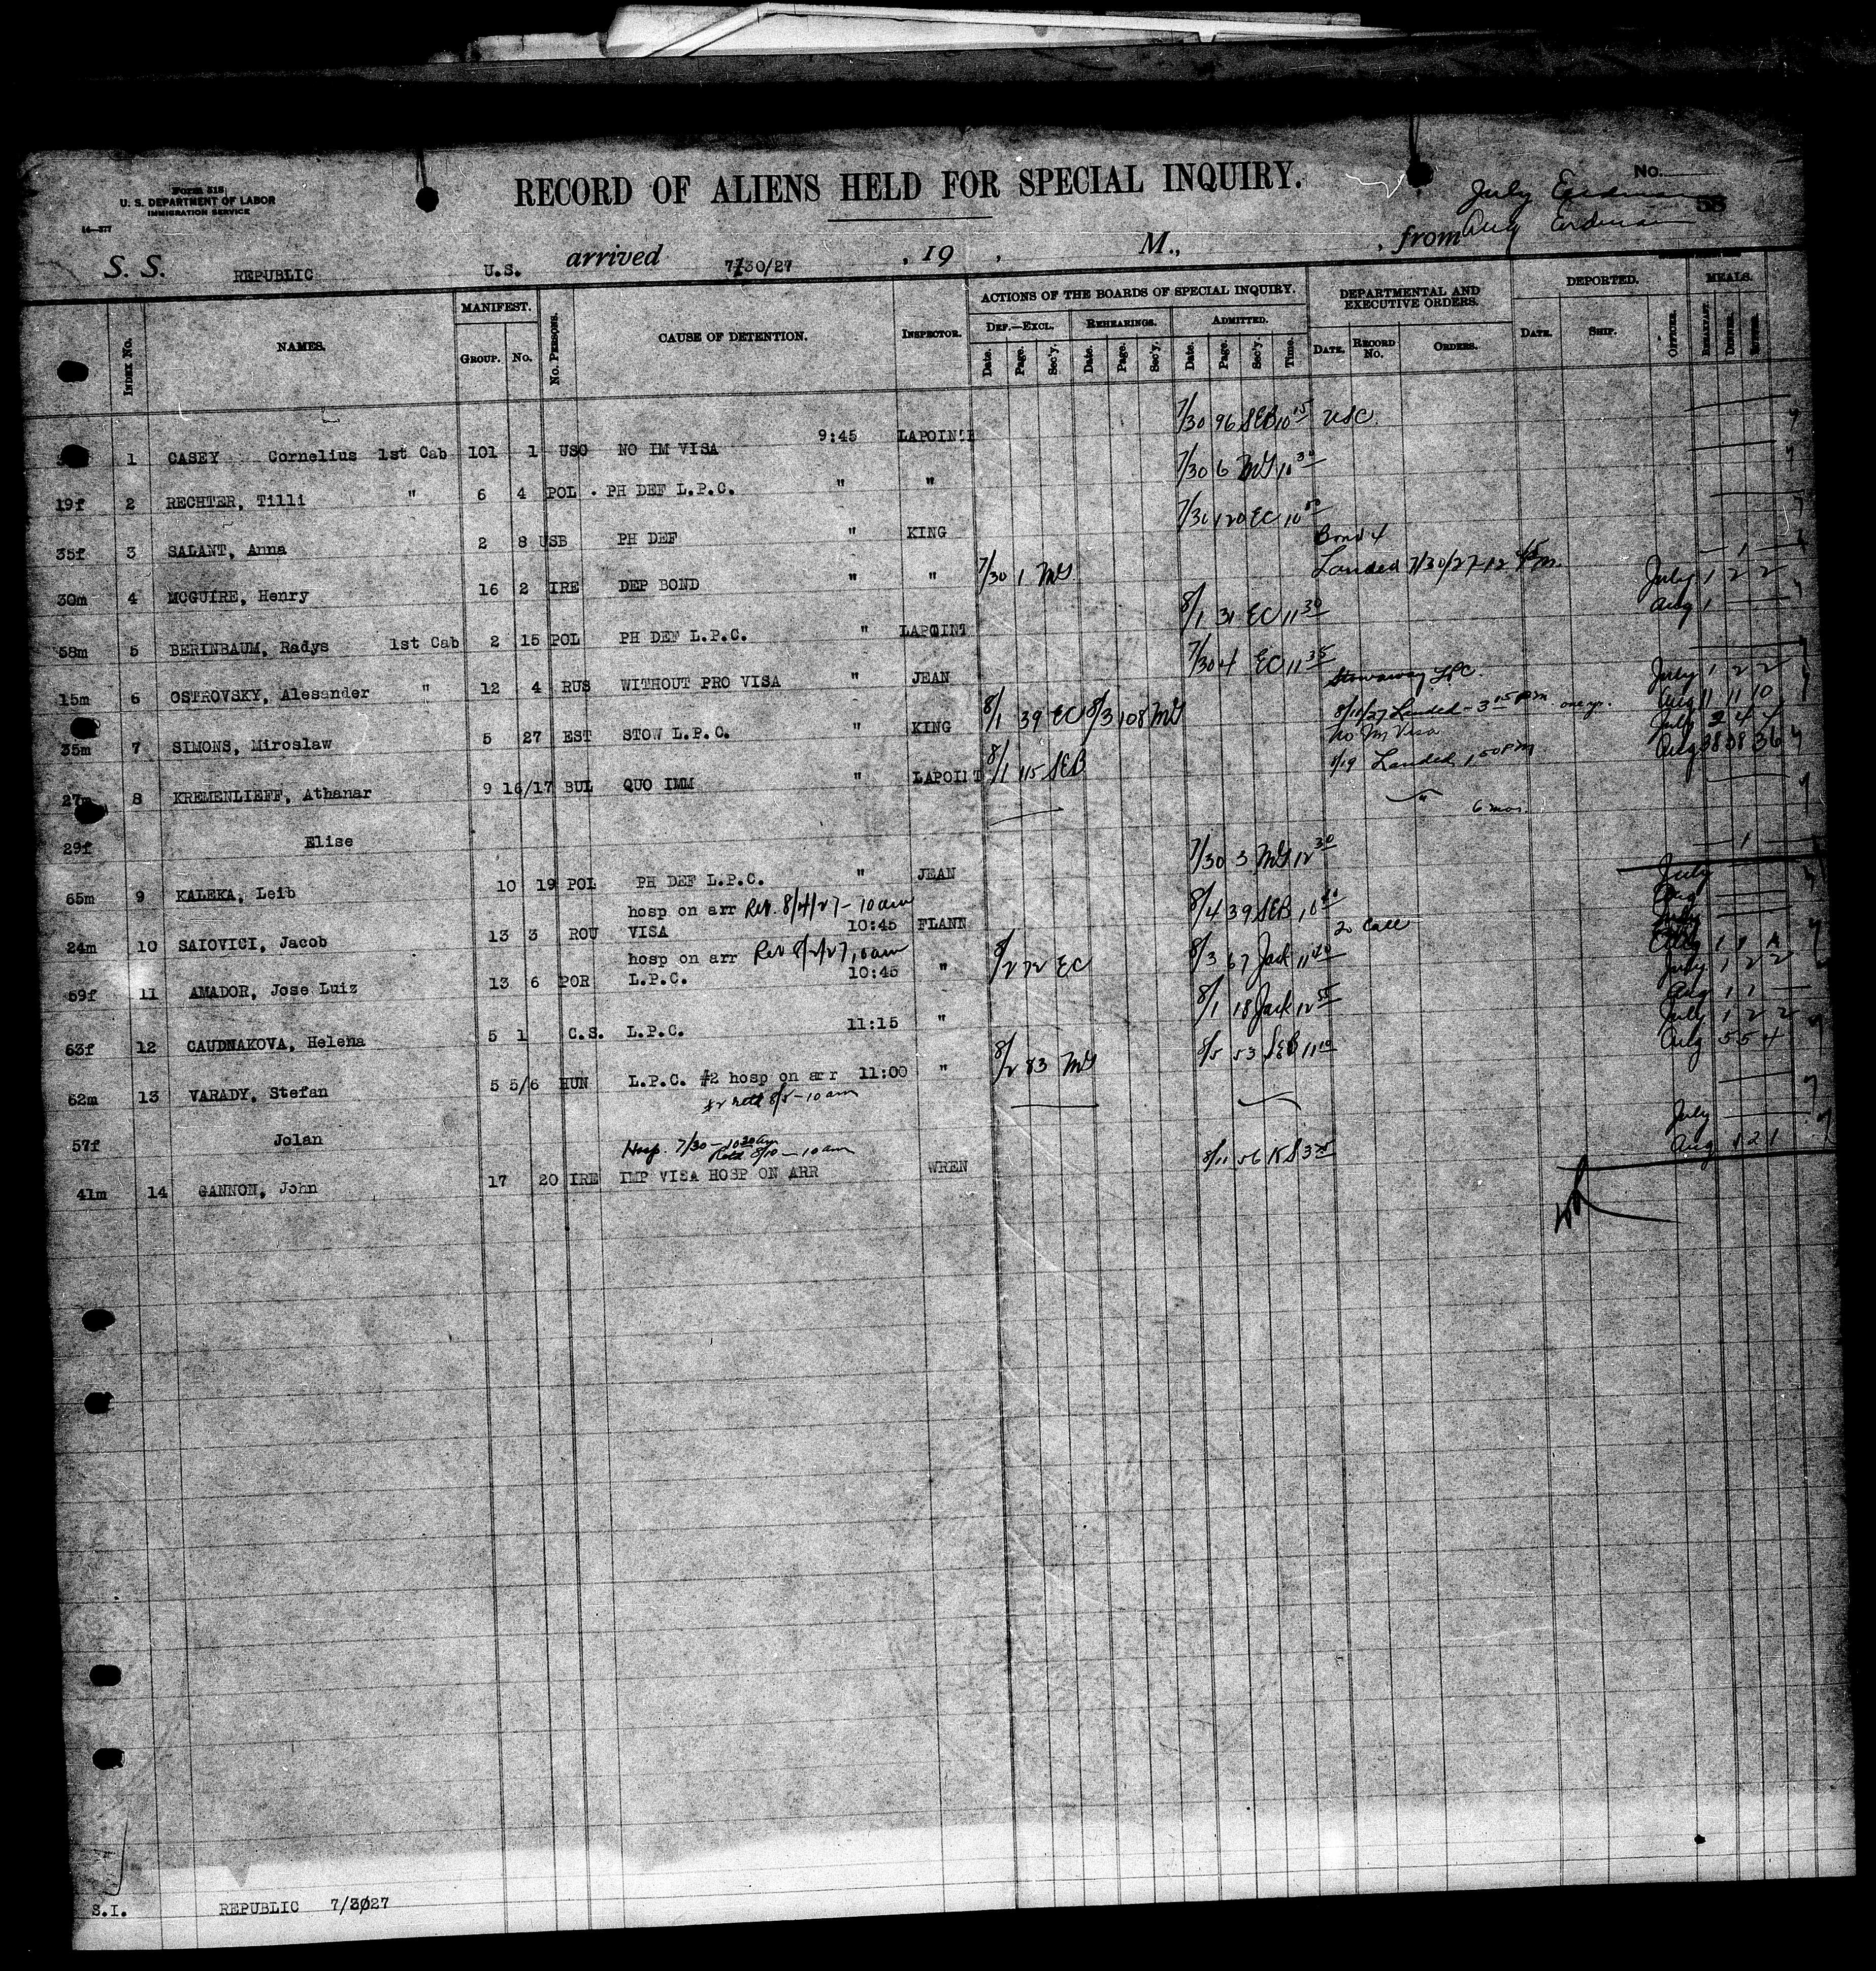 Form 518
U. S. DEPARTMENT OF LABOR
IMMIGRATION SERVICE
14—377
RECORD OF ALIENS HELD FOR SPECIAL INQUIRY.
No.
58
July Erdman
Aug Erdman
S. S. REPUBLIC U.S. arrived 7/30/27 , 19 , M., , from
NAMES. MANIFEST. CAUSE OF DETENTION. INSPECTOR. ACTIONS OF THE BOARDS OF SPECIAL INQUIRY. DEPARTMENTAL AND EXECUTIVE ORDERS. DEPORTED. MEALS.
INDEX NO. GROUP. NO. NO. PERSONS. DEF.—EXCL. REHEARINGS. ADMITTED.
Date. Page. Sec'y. Date. Page. Sec'y. Date. Page. Sec'y. Time. DATE. RECORD NO. ORDERS. DATE. SHIP. OFFICER. BREAKFAST. DINNER. SUPPER.
1 CASEY Cornelius 1st Cab 101 1 USC NO IM VISA 9:45 LAPOINTE 7/30 96 SEB 10 15 USC
19f 2 RECHTER, Tilli " 6 4 POL PH DEF L.P.C. " " 7/30 6 MG 10 30
35f 3 SALANT, Anna 2 8 USB PH DEF " KING 7/30 120 EC 10 50
30m 4 MCGUIRE, Henry 16 2 IRE DEP BOND " " 7/30 1 MG Bond Landed 7/30/27-12 45 Pm. 1
58m 5 BERINBAUM, Radys 1st Cab 2 15 POL PH DEF L.P.C. " LAPOINT 8/1 31 EC 11 30 July 1 2 2 Aug 1
15m 6 OSTROVSKY, Alesander " 12 4 RUS WITHOUT PRO VISA " JEAN 7/30 4 EC 11 35
35m 7 SIMONS, Miroslaw 5 27 EST STOW L.P.C. " KING 8/1 39 EC 8/3 108 MG Stowaway LPC 8/11/27 Landed - 3 15 PM one yr. July 1 2 2 Aug 11 11 10
27m 8 KREMENLIEFF, Athanar 9 16/17 BUL QUO IMM " LAPOINT 8/1 115 SEB No Im Visa 8/19 Landed 1 50 PM July 2 4 4 Aug 38 38 36
29f Elise " 6 mos.
65m 9 KALEKA, Leib 10 19 POL PH DEF L.P.C. " JEAN 7/30 3 MG 12 30 1
hosp on arr Rel. 8/4/27 - 10 am
24m 10 SAIOVICI, Jacob 13 3 ROU VISA 10:45 FLANN 8/4 39 SEB 10 July Aug
hosp on arr Rel 8/2/27, 10 am
59f 11 AMADOR, Jose Luiz 13 6 POR L.P.C. 10:45 " 8/2 72 EC 8/3 67 Jack 11 20 to Call July Aug 1 1 1
63f 12 CAUDNAKOVA, Helena 5 1 C.S. L.P.C. 11:15 " 8/1 18 Jack 12 55 July 1 2 2 Aug 1 1
62m 13 VARADY, Stefan 5 5/6 HUN L.P.C. #2 hosp on arr 11:00 " 8/2 83 MG 8/5 53 SEB 11 10 July 1 2 2 Aug 5 5 4
#2 retd 8/5 - 10 am
57f Jolan
Hosp. 7/30 - 10 30 am
Retd 8/10 - 10 am
41m 14 GANNON, John 17 20 IRE IMP VISA HOSP ON ARR WREN 8/11 56 KS 3 25 July Aug 1 2 1
S.I. REPUBLIC 7/30/27